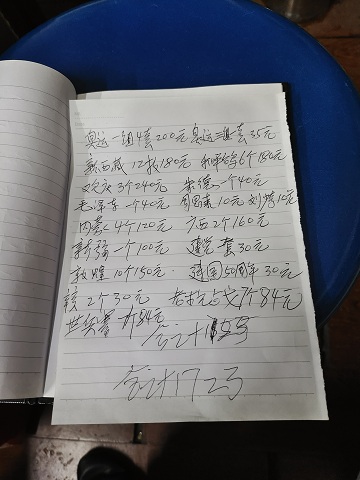 奥运一组4套200元 奥运三组 套35元
新西藏12枚180元 和平鸽6个180元
3个240元 朱德一个40元
毛泽东一个40元 周恩来10元 刘 15元
内蒙人4个120元 广西2个160元
新疆一个100元 建党一套30元
敦煌10个150元 建国50周年30元
2个30元 7个84元
84元
合计
合计1723